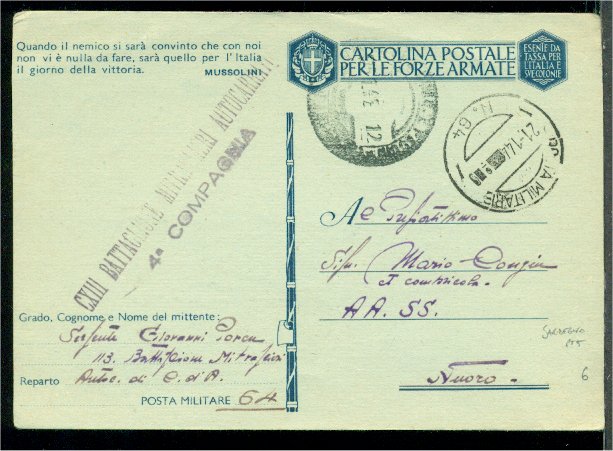 Quando il nemico si sarà convinto che con noi
non vi è nulla da fare, sarà quello per l'Italia
il giorno della vittoria. MUSSOLINI
CARTOLINA POSTALE
PER LE FORZE ARMATE
ESENTE DA
TASSA PER
L'ITALIA E
SUE COLONIE
CXIII BATTAGLIONE MITRAGLIERI AUTOCARRATI
4ª COMPAGNIA
POSTA MILITARE
N. 64
Mario
AA. SS.
Nuoro
Grado, Cognome e Nome del mittente:
Sergente Giovanni Porcu
113. Battaglione Mitraglieri
Reparto Autoc. di C. d'A.
POSTA MILITARE 64
SARDEGNA
6